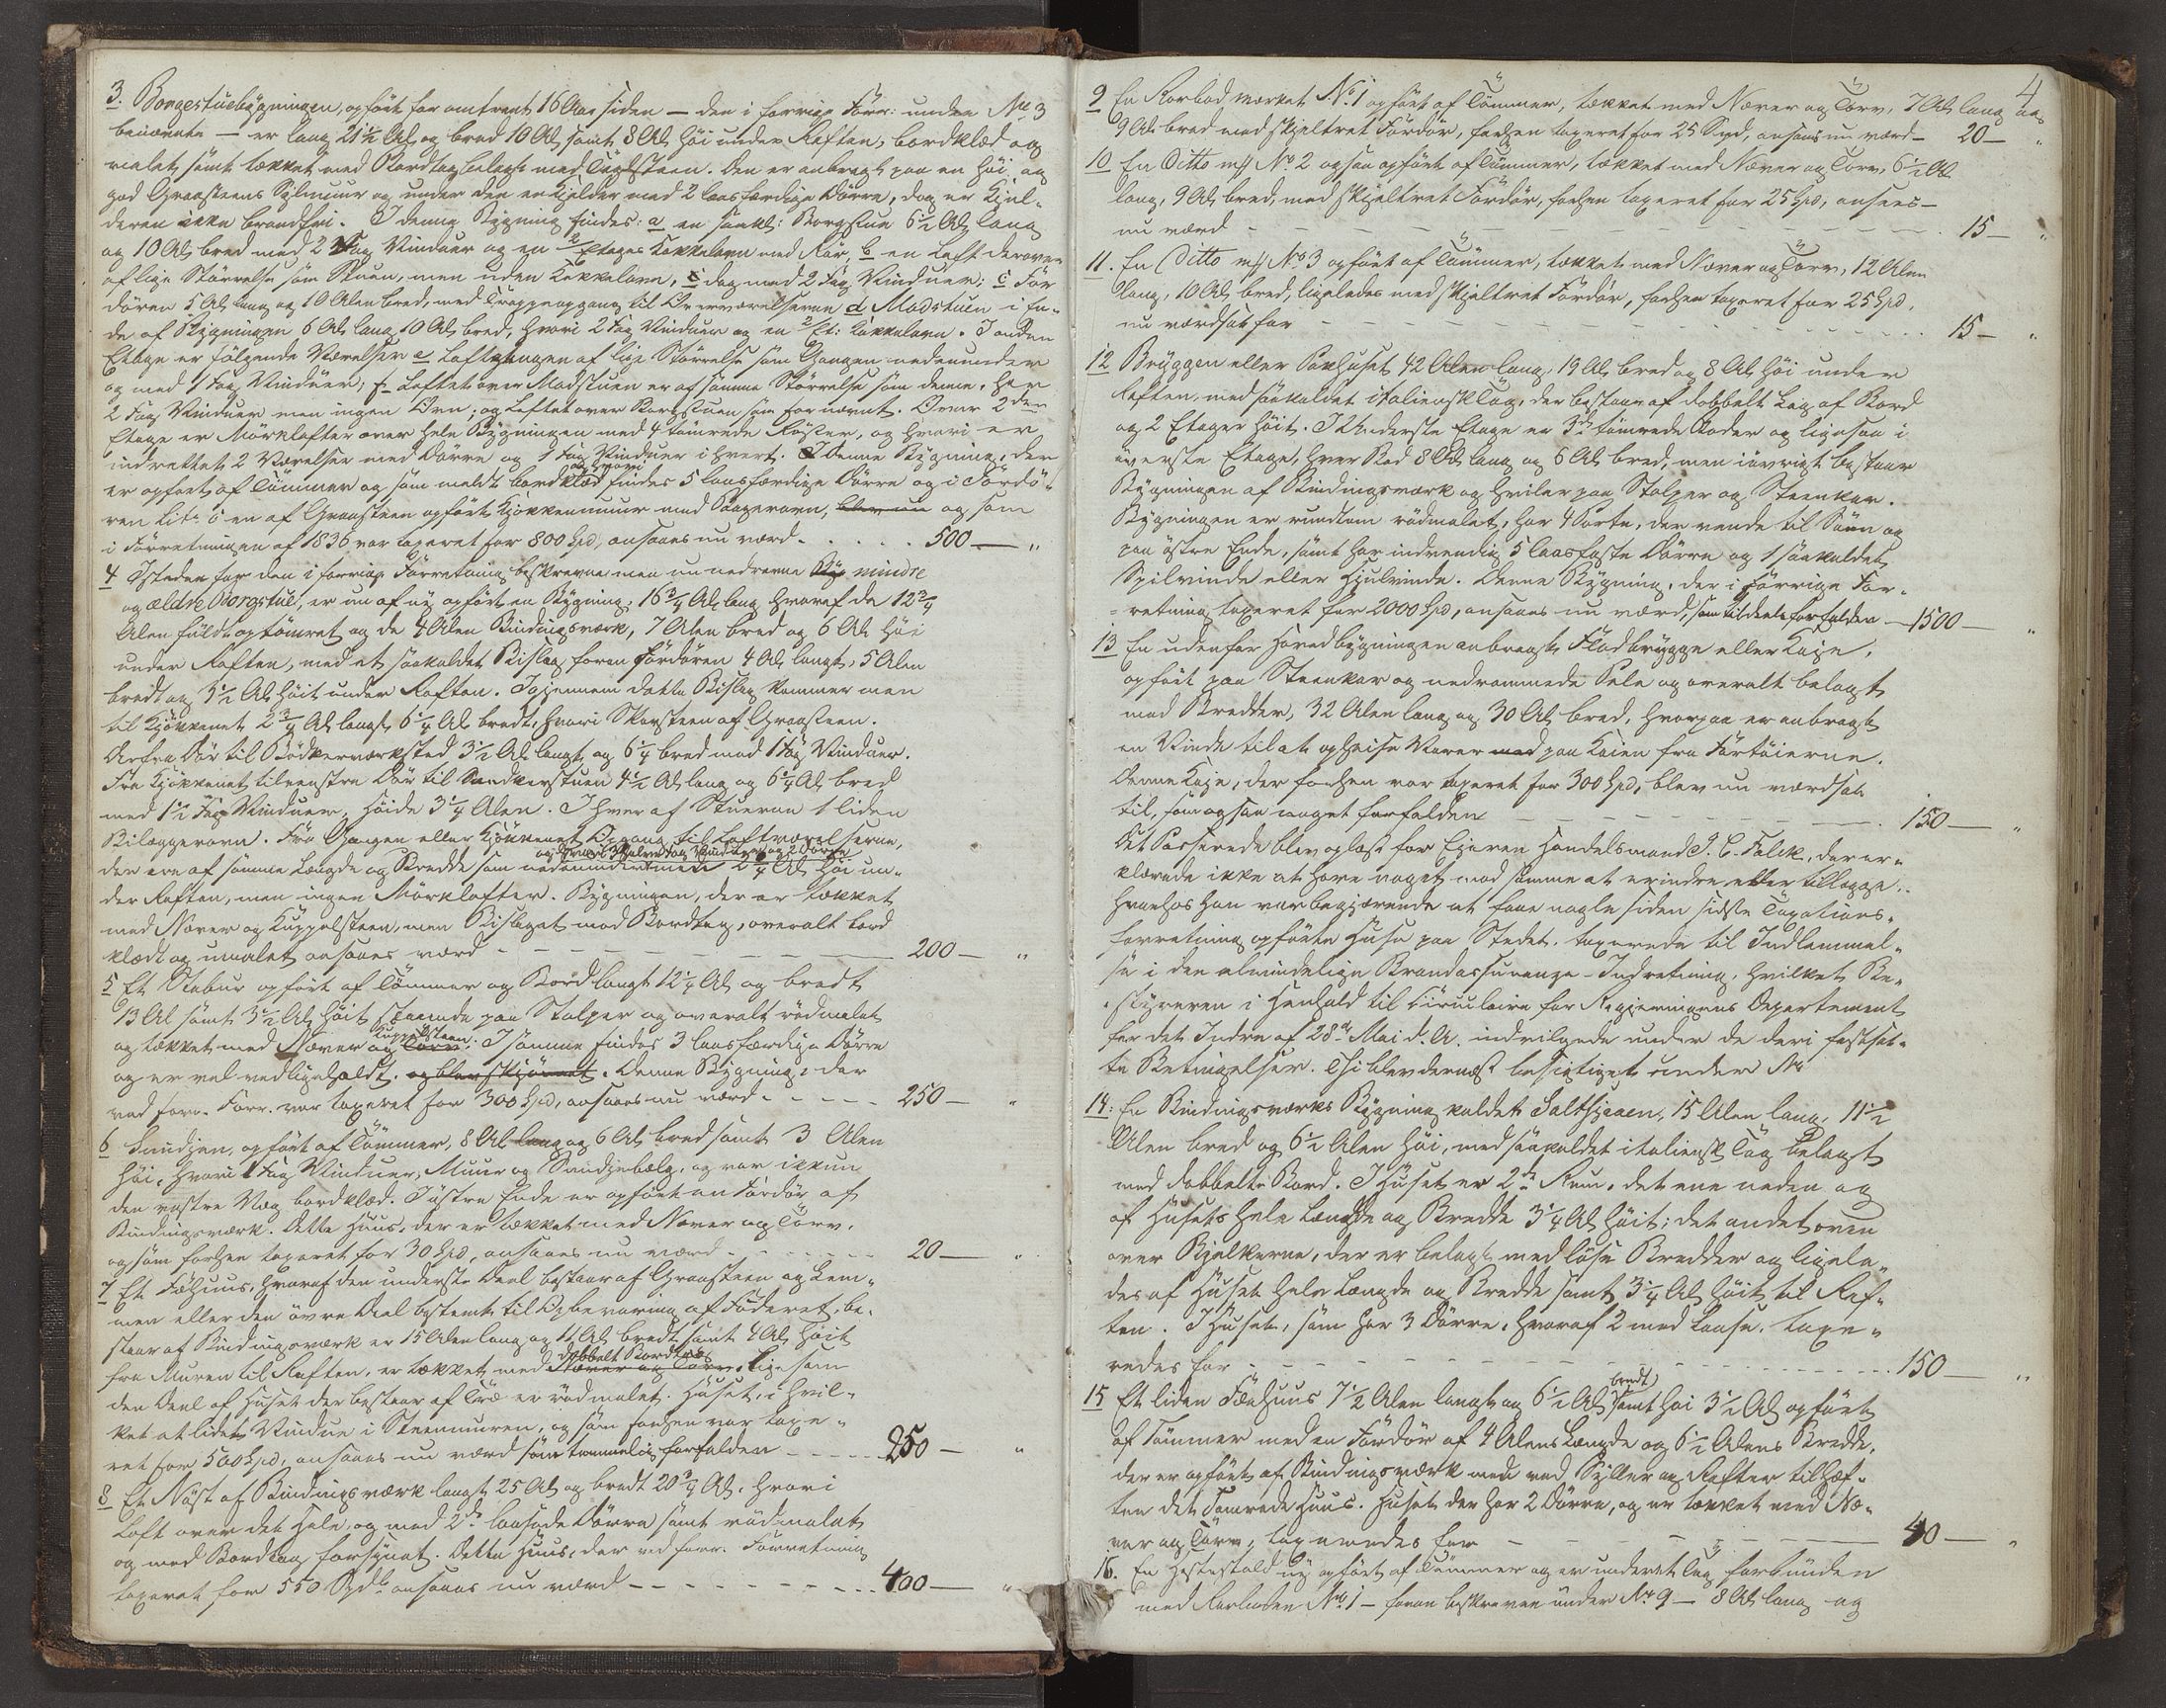 3. Borgestuebygningen, opført for omtrent 16 Aar siden — den i forrige Forr: under No 3
benævnte — er lang 21½ Al. og bred 10 Al. samt 8 Al. høi under Raften, bordklæd og
malet, samt tækket med Bordtag belagt med Tagsteen. Den er anbragt paa en høi og
god Graasteens Sylmuur og under den er Kjelder med 2 laasfærdige Dørre, dog er Kjel-
deren ikke brandfri. I denne Bygning findes: a en saakl: Borgstue 6½ Al. lang
og 10 Al. bred med 2 Fag Vinduer og en 2 Etages Kakkelovn med Rør, b en Loft derover
af lige Størrelse som Stuen, men uden Kakkelovn, dog med 2 Fag Vinduer; c For
døren 5 Al. lang og 10 Alen bred, med Trappeopgang til Overværelserne d Madstuen i En-
de af Bygningen 6 Al. lang 10 Al. bred, hvori 2 Fag Vinduer og en 2 Et: Kakkelovn. I anden
Etage er følgende Værelser e Loftgangen af lige Størrelse som Gangen nedenunder
og med 1 Fag Vinduer; f Loftet over Madstuen er af samme Størrelse som denne, har
2 Fag Vinduer men ingen Ovn; og Loftet over Borgstuen som før nævnt. Over 2den
Etage er Mørklofter over hele Bygningen med 4 tømrede Røster, og hvori er
indrettet 2 Værelser med Dørre og 1 Fag Vinduer i hvert. I denne Bygning, der
er opført af Tømmer og som meldt bordklæd og hvori findes 5 laasfærdige Dørre og i Fordø-
ren Litr c en af Graasteen opført Kjøkkenmuur med Bagerovn, blev nu og som
i Forretningen af 1836 var taxeret for 800 Spd, ansaaes nu værd - - - - 500 — "
4 Isteden for den i forrige Forretning beskrevne men nu nedrevne Byg mindre
og ældre Borgstue, er nu af ny opført en Bygning, 16¾ Al. lang hvoraf de 12¾
Alen fuldt optømret og de 4 Alen Bindingsværk, 7 Alen bred og 6 Al. høi
under Raften, med et saakaldet Bislag foran Fordøren 4 Al. langt, 5 Alen
bredt og 3½ Al. høit under Raften. Igjennem dette Bislag kommer man
til Kjøkkenet 2¾ Al. langt, 6¼ Al. bredt, hvori Skorsteen af Graasteen.
Derfra Dør til Bødkerværksted 3½ Al. langt og 6¼ bred med 1 Fag Vinduer.
Fra Kjøkkenet tilvenstre Dør til Snedkerstuen 4½ Al. lang og 6¼ Al. bred
med 1½ Fag Vinduer, Høide 3¼ Alen. I hver af Stuerne 1 liden
Bilæggerovn. Fra Gangen eller Kjøkkenet Opgang til Loftværelserne,
og hvori 3 halve Fag Vinduer og 2 Dørre
der ere af samme Længde og Bredde som nedenunder men 2¼ Al. høi un-
der Raften, men ingen Mørklofter. Bygningen, der er tækket
med Næver og Kuppelsteen, men Bislaget med Bordtag, overalt bord
klædt og umalet ansaaes værd - - - - 200 — "
5 Et Stabur opført af Tømmer og Bord langt 12¼ Al. og bredt
13 Al. samt 3½ Al. høit staaende paa Stolper og overalt rødmalet
og tækket med Næver og Torv Kuppelsteen. I samme findes 3 laasfærdige Dørre
og er vel vedligeholdt. og blev skjønnet. Denne Bygning, der
ved forr. Forr. var taxeret for 300 Spd, ansaaes nu værd - - - - 250 — "
6 Smidjen, opført af Tømmer, 8 Al. lang og 6 Al. bred samt 3 Alen
høi, hvori 1 Fag Vinduer, Muur og Smidjebælg, og var ikkun
den vestre Væg bordklæd. I østre Ende er opført en Fordør af
Bindingsværk. Dette Huus, der er tækket med Næver og Torv,
og som forhen taxeret for 30 Spd, ansaaes nu værd - - - - 20 — "
7 Et Føhuus, hvoraf den underste Deel bestaar af Graasteen og Lem-
men eller den øvre Deel bestemt til Opbevaring af Foderet, be-
staar af Bindingsværk er 15 Alen lang og 11 Al. bredt samt 4 Al. høit
fra Muren til Raften, er tækket med Næver og Torv dobbelt Bordtag. Ligesom
den Deel af Huset der bestaar af Træ er rødmalet. Huset, i hvil-
ket et lidet Vindue i Steenmuren, og som forhen var taxe-
ret for 500 Spd, ansaaes nu værd som temmelig forfalden - - - - 250 — "
8 Et Nøst af Bindingsværk langt 25 Al. og bredt 20¾ Al. hvori
Loft over det Hele, og med 2de laasede Dørre samt rødmalet
og med Bordtag forsynet. Dette Huus, der ved forr. Forretning
taxeret for 550 Spdlr ansaaes nu værd - - - - 400 — "
4
9 En Rorbod mærket No 1 opført af Tømmer, tækket med Næver og Torv, 7 Al. lang og
9 Al. bred med skjeltret Fordør, forhen taxeret for 25 Spd, ansaaes nu værd — 20 — "
10 En Ditto m/ No 2 ogsaa opført af Tømmer, tækket med Næver og Torv, 6½ Al.
lang, 9 Al. bred, med skjeltret Fordør, forhen taxeret for 25 Spd, ansees —
nu værd - - - - 15 — "
11. En Ditto m/ No 3 opført af Tømmer, tækket med Næver og Torv, 12 Alen
lang, 10 Al. bred, ligeledes med skjeltret Fordør, forhen taxeret for 25 Spd,
nu værdsat for - - - - 15 — "
12 Bryggen eller Pakhuset 42 Alen lang, 19 Al. bred og 8 Al. høi under
Raften, med saakaldet italiensk Tag, der bestaar af dobbelt Lag af Bord
og 2 Etager høit. I Underste Etage er 3de tømrede Boder og ligesaa i
øverste Etage, hver Bod 8 Al. lang og 6 Al. bred, men iøvrigt bestaar
Bygningen af Bindingsværk og hviler paa Stolper og Steenkar.
Bygningen er rundtom rødmalet, har 4 Porte, der vende til Søen og
paa østre Ende, samt har indvendig 5 laasfaste Dørre og 1 saakaldet
Spilvinde eller Hjulvinde. Denne Bygning, der i forrige For-
retning taxeret for 2000 Spd, ansaaes nu værd, som tildeels forfalden — 1500 — "
13 En udenfor Hovedbygningen anbragt Fladbrygge eller Kaje,
opført paa Steenkar og nedrammede Pele og overalt belagt
med Bredder, 32 Alen lang og 30 Al. bred, hvorpaa er anbragt
en Vinde til at opheise Varer med paa Kaien fra Fartøierne.
Denne Kaje, der forhen var taxeret for 300 Spd, blev nu værdsat
til, som ogsaa noget forfalden - - - - 150 — "
Det Passerede blev oplæst for Eieren Handelsmand J. C. Falck, der er-
klærede ikke at have noget mod samme at erindre eller tillægge.
Hvorhos han var begjærende at faae nogle siden sidste Taxations-
forretning opførte Huse paa Stedet taxerede til Indlemmel-
se i den almindelige Brandassurance-Indretning, hvilket Be-
styreren i Henhold til Circulaire fra Regjeringens Departement
for det Indre af 28de Mai d. A. indvilgede under de deri fastsat-
te Betingelser. Thi blev dernæst besigtiget under No
14: En Bindingsværks Bygning kaldet Saltsjaaen, 15 Alen lang, 11½
Alen bred og 6½ Alen høi, med saakaldet italiensk Tag belagt
med dobbelte Bord. I Huset er 2de Rum, det ene neden og
af Husets hele Længde og Bredde 3¼ Al. høit; det andet oven
over Bjelkerne, der er belagt med løse Bredder og ligele-
des af Husets hele Længde og Bredde samt 3¼ Al. høit til Raf-
ten. I Huset, som har 3 Dørre, hvoraf 2 med Laase, taxe-
redes for - - - - 150 — "
15 Et liden Fæehuus 7½ Alen langt og 6½ Al. bredt samt høi 3½ Al. opført
af Tømmer med en Fordør af 4 Alens Længde og 6½ Alens Bredde,
der er opført af Bindingsværk med ved Syller og Rafter tilhæf-
ten det tømrede Huus. Huset der har 2 Dørre, og er tækket med Næ-
ver og Torv, taxeredes for - - - - 40 — "
16. En Hestestald ny opført af Tømmer og er under et Tag forbunden
med Rorboden No 1 — foran beskreven under No 9 — 8 Al. lang og